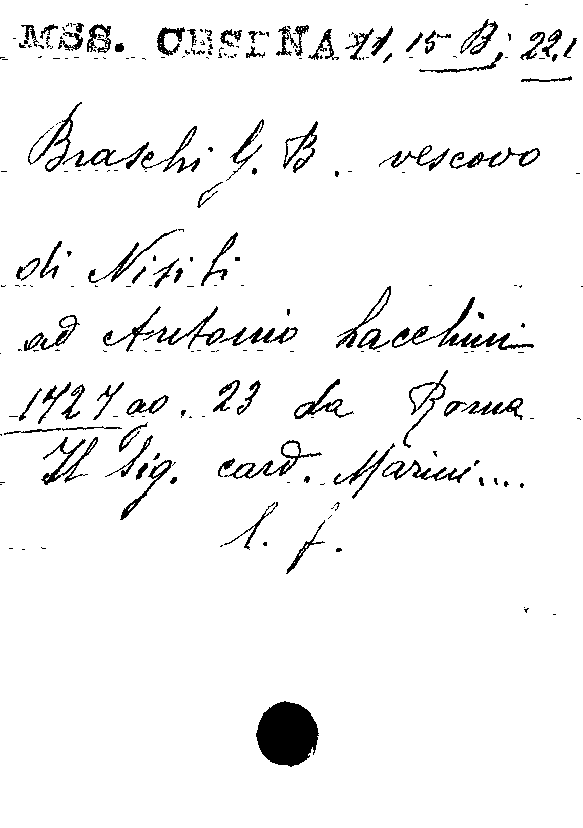 MSS. CESENA 11, 15 B; 22,1
Braschi G. B. vescovo
di Nisibi
ad Antonio Lacchini
1727 ag. 23 da Roma
Il Sig. card. Marini....
l. f.